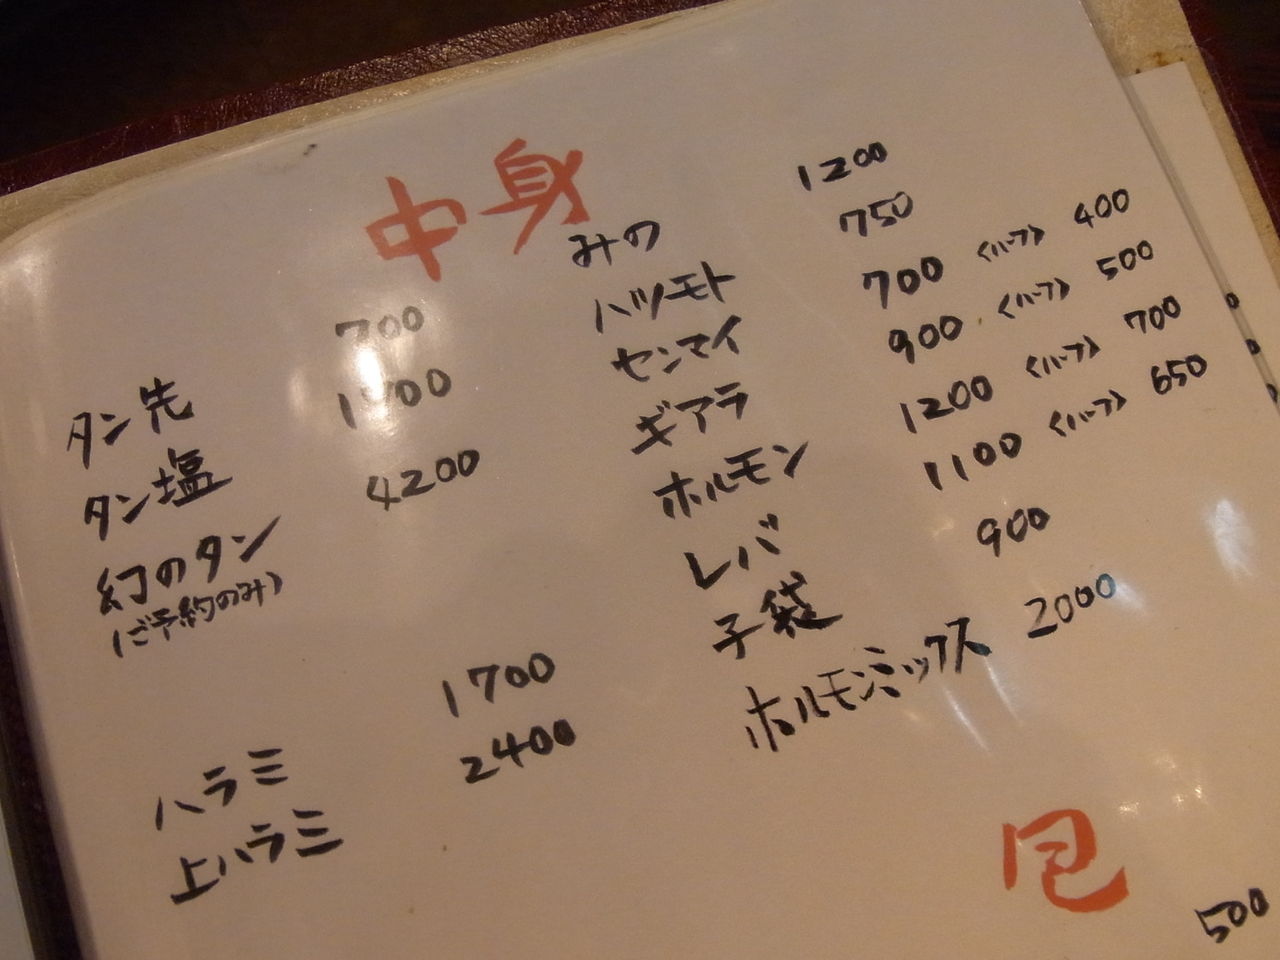 中身
タン先 700
タン塩
幻のタン 4200
(ご予約のみ)
ハラミ 1700
上ハラミ 2400
みの 1200
ハツモト 750
センマイ 700 <ハーフ> 400
ギアラ 900 <ハーフ> 500
ホルモン 1200 <ハーフ> 700
レバ 1100 <ハーフ> 650
子袋 900
ホルモンミックス 2000
包
500